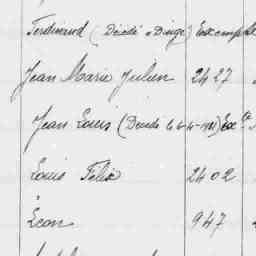 Ferdinand (Décédé à Dinge) Exempté
Jean Marie Julien 2427
Jean Louis (Décédé le 6-4-1981) Exté
Louis Félix 2402
Léon 947